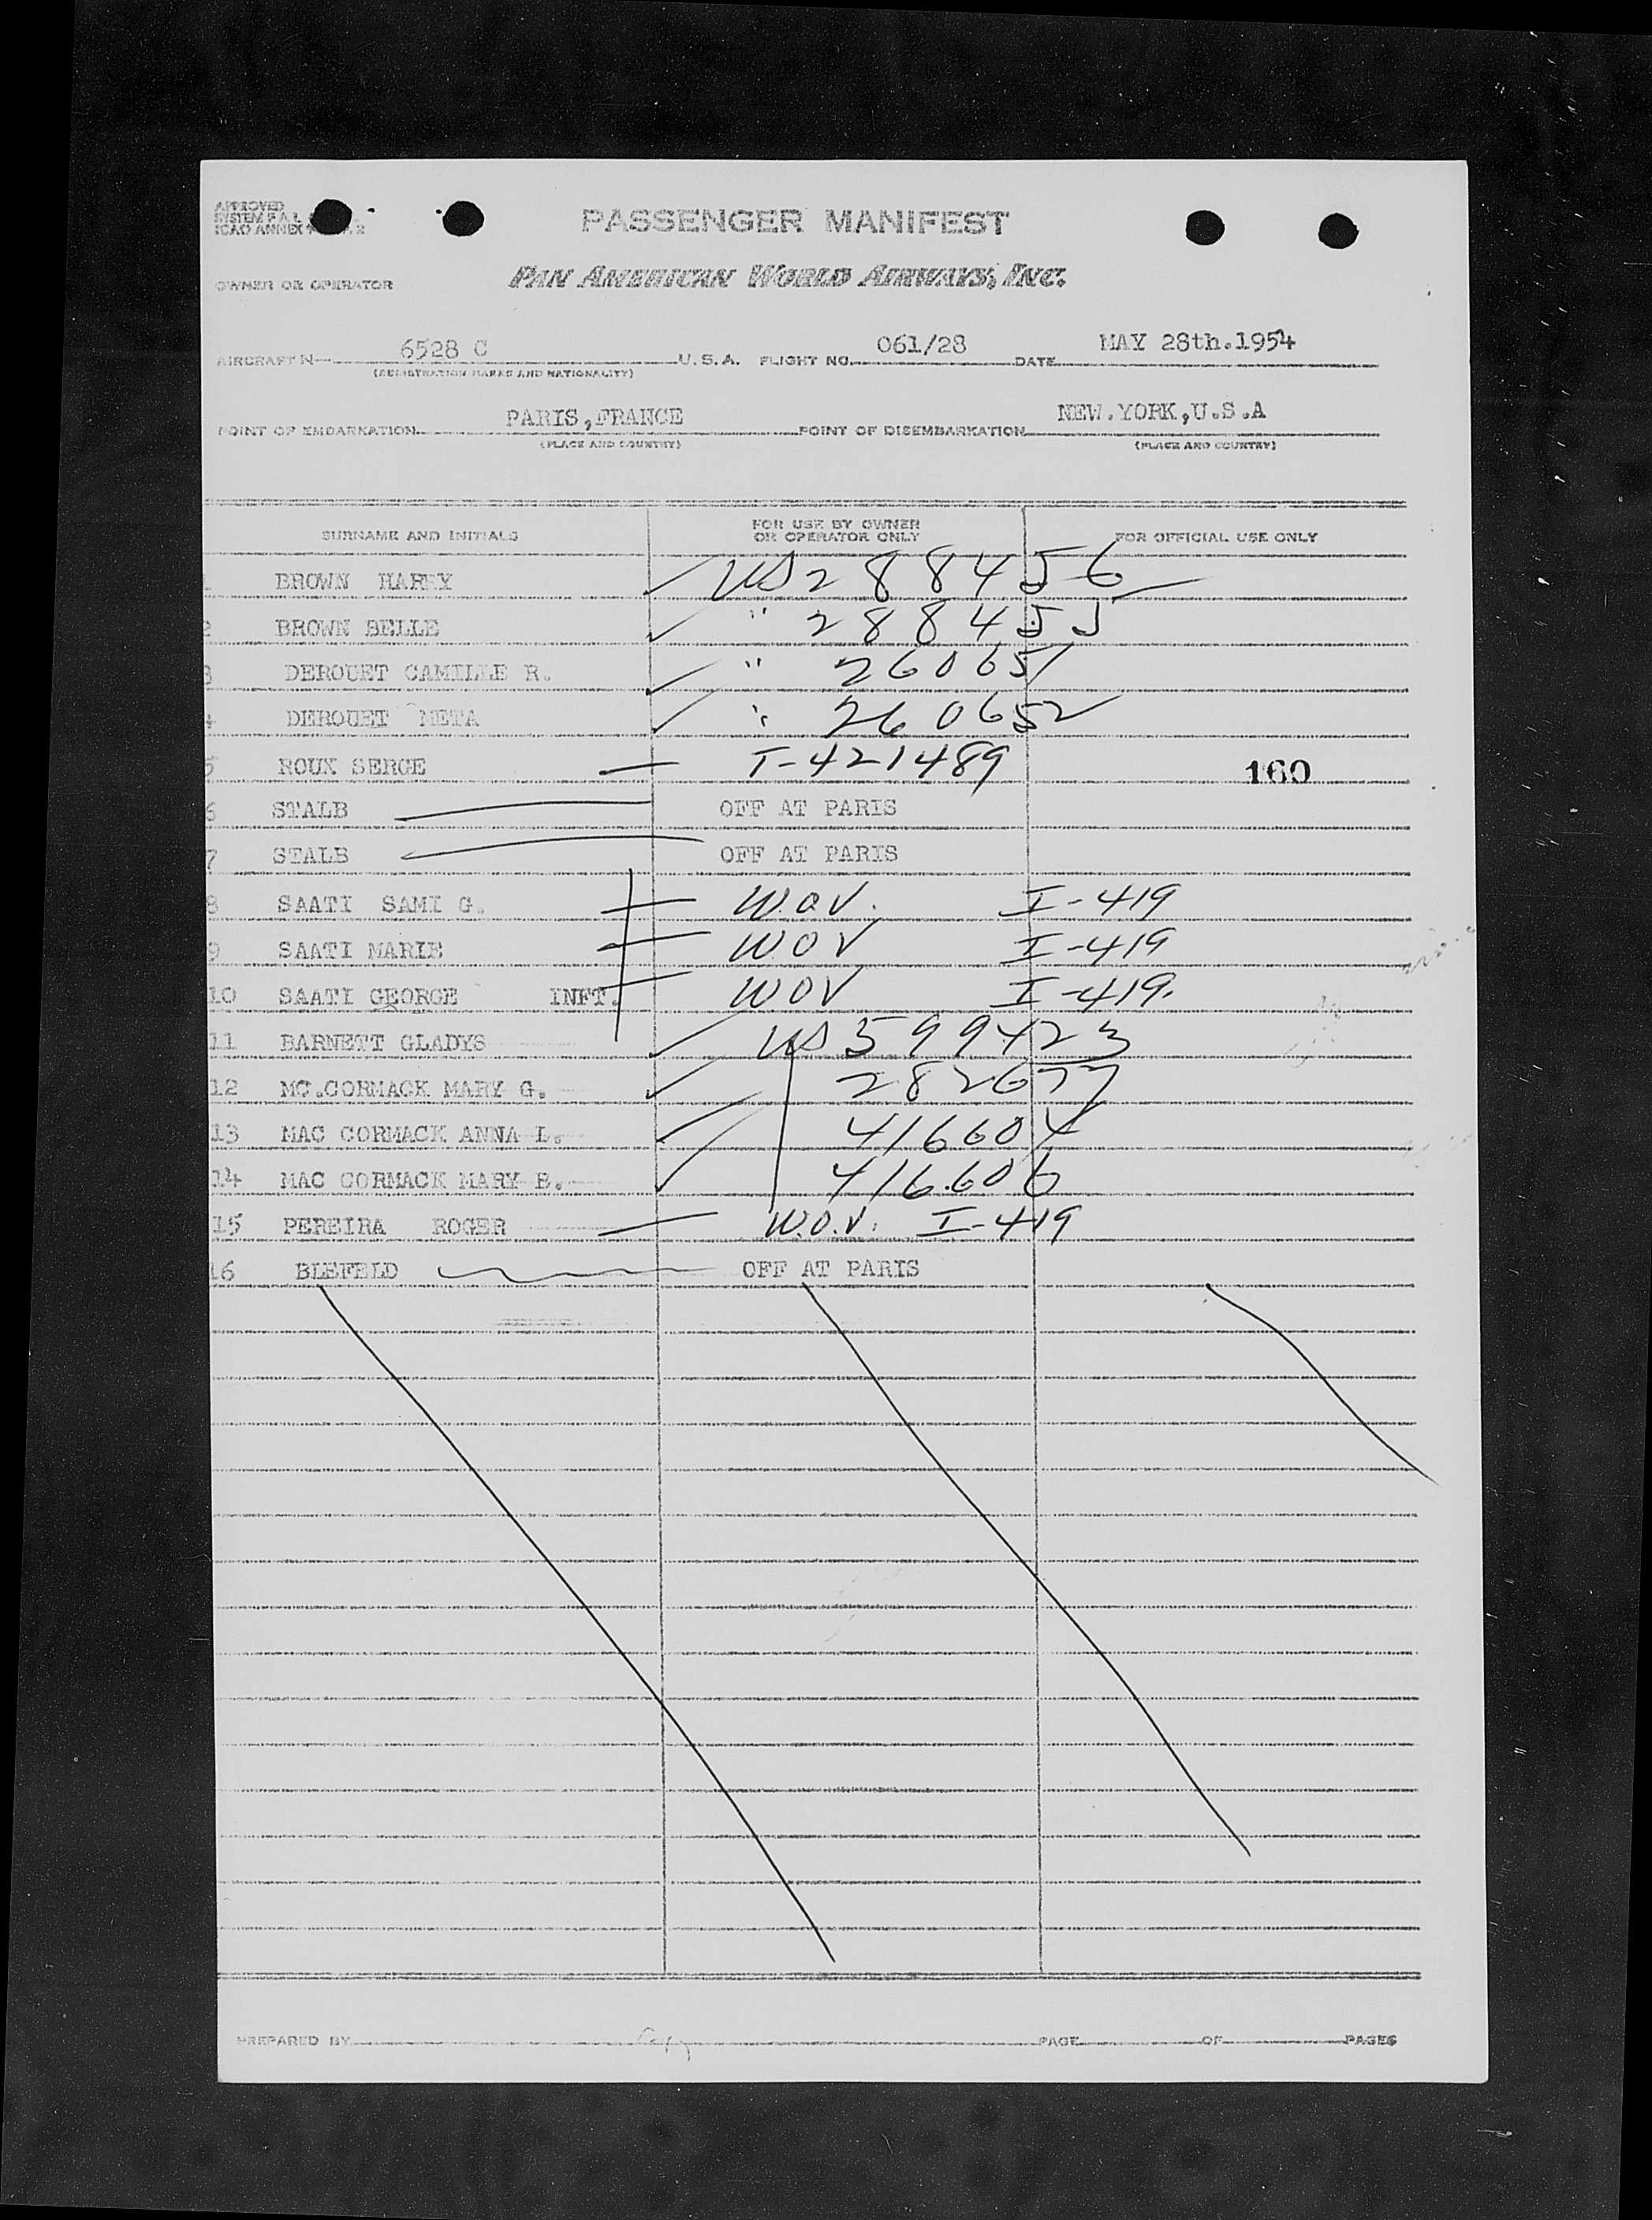 APPROVED
SYSTEM F.A.L.
ICAO ANNEX 9 2
PASSENGER MANIFEST
OWNER OR OPERATOR PAN AMERICAN WORLD AIRWAYS, INC.
AIRCRAFT N 6528 C U.S.A. FLIGHT NO. 061/28 DATE MAY 28th.1954
(REGISTRATION MARKS AND NATIONALITY)
POINT OF EMBARKATION PARIS,FRANCE POINT OF DISEMBARKATION NEW.YORK,U.S.A
(PLACE AND COUNTRY) (PLACE AND COUNTRY)
SURNAME AND INITIALS FOR USE BY OWNER OR OPERATOR ONLY FOR OFFICIAL USE ONLY
1 BROWN HARRY US 288456
2 BROWN BELLE " 288455
3 DEROUET CAMILLE R. " 260651
4 DEROUET META " 260652
5 ROUX SERGE I-421489 160
6 STALB OFF AT PARIS
7 STALB OFF AT PARIS
8 SAATI SAMI G. W.O.V. I-419
9 SAATI MARIE WOV I-419
10 SAATI GEORGE INFT. WOV I-419.
11 BARNETT GLADYS US 599423
12 MC.CORMACK MARY G. 282677
13 MAC CORMACK ANNA L. 416604
14 MAC CORMACK MARY B. 416606
15 PEREIRA ROGER W.O.V. I-419
16 BLEFELD OFF AT PARIS
PREPARED BY PAGE OF PAGES